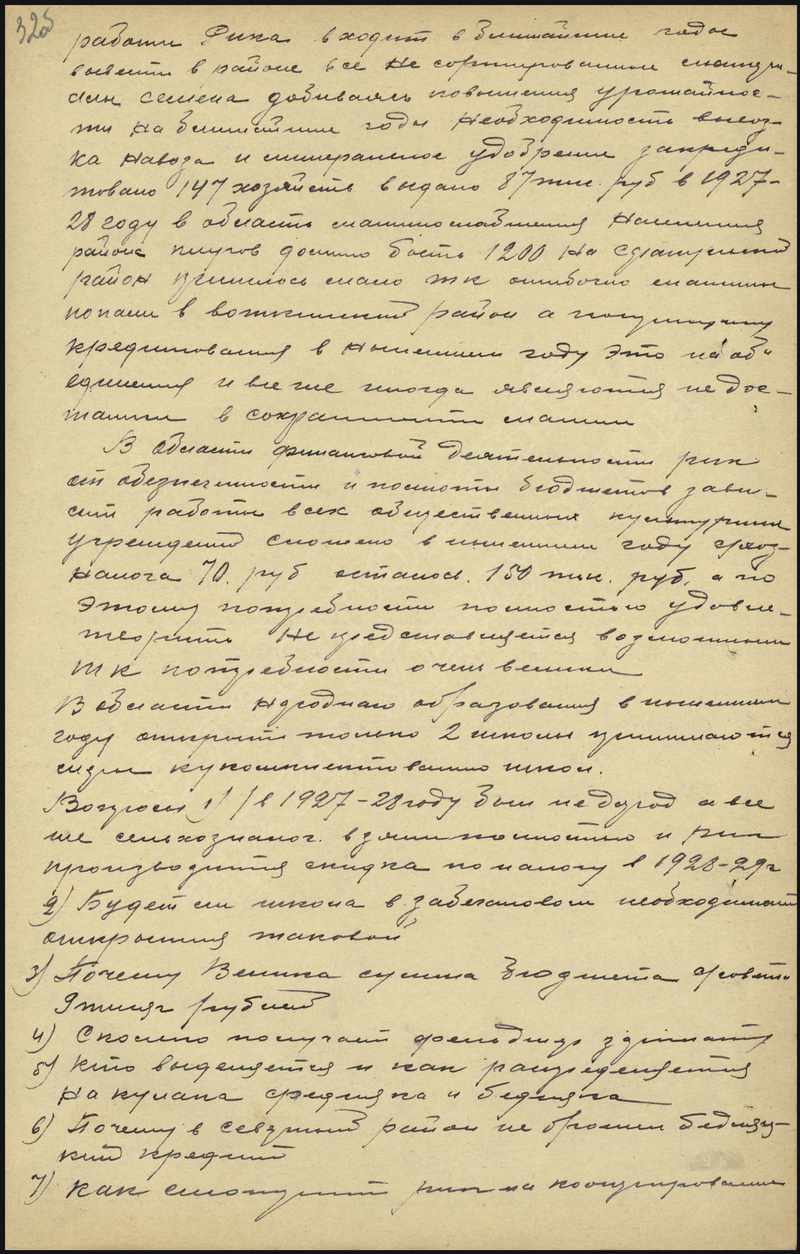 325
работы Рика входит в ближайшие годы
вывести в районе все не сортированные
семена добиваясь повышения урожайнос-
ти на ближайшие годы необходимость вывоз-
ка навоза и минеральное удобрение закреди-
товано 147 хозяйств выдано 87 тыс. руб в 1927-
28 году в область машиноснабжения
района плугов должно быть 1200 на
район пришлось мало тк ошибочно машины
попали в воткинский район а
кредитования в нынешнем году это на об"
единения и все же иногда являются недос-
татки в сохранности машин
В области финансовой деятельности рик
от обезпеченности и полноты бюджетов зави-
сит работы всех общественных культурных
учреждений сложено в нынешнем году
налога 70. руб осталось. 150 тыс. руб. а по
этому потребности полностью удовле-
творить не представляется возможным
тк потребности очень велики
В области народного образования в нынешнем
году открыт только 2 школы принимаются
меры к укомплектованию школ.
Вопросы 1) в 1927-28 году был недород а все
же сельхозналог. взяли полностью и
производится скидка по налогу в 1928-29г
2) Будет ли школа в необходимост
открытия таковой
3) Почему Велика сумма бюджета
9 тысяч рублей
4) Сколько получает фельдшер
5) Кто выделяется и как распределяется
на кулака средняка и бедняка
6) Почему в район не бедняц-
кий кредит
7) Как смотрит рик на кооперирование